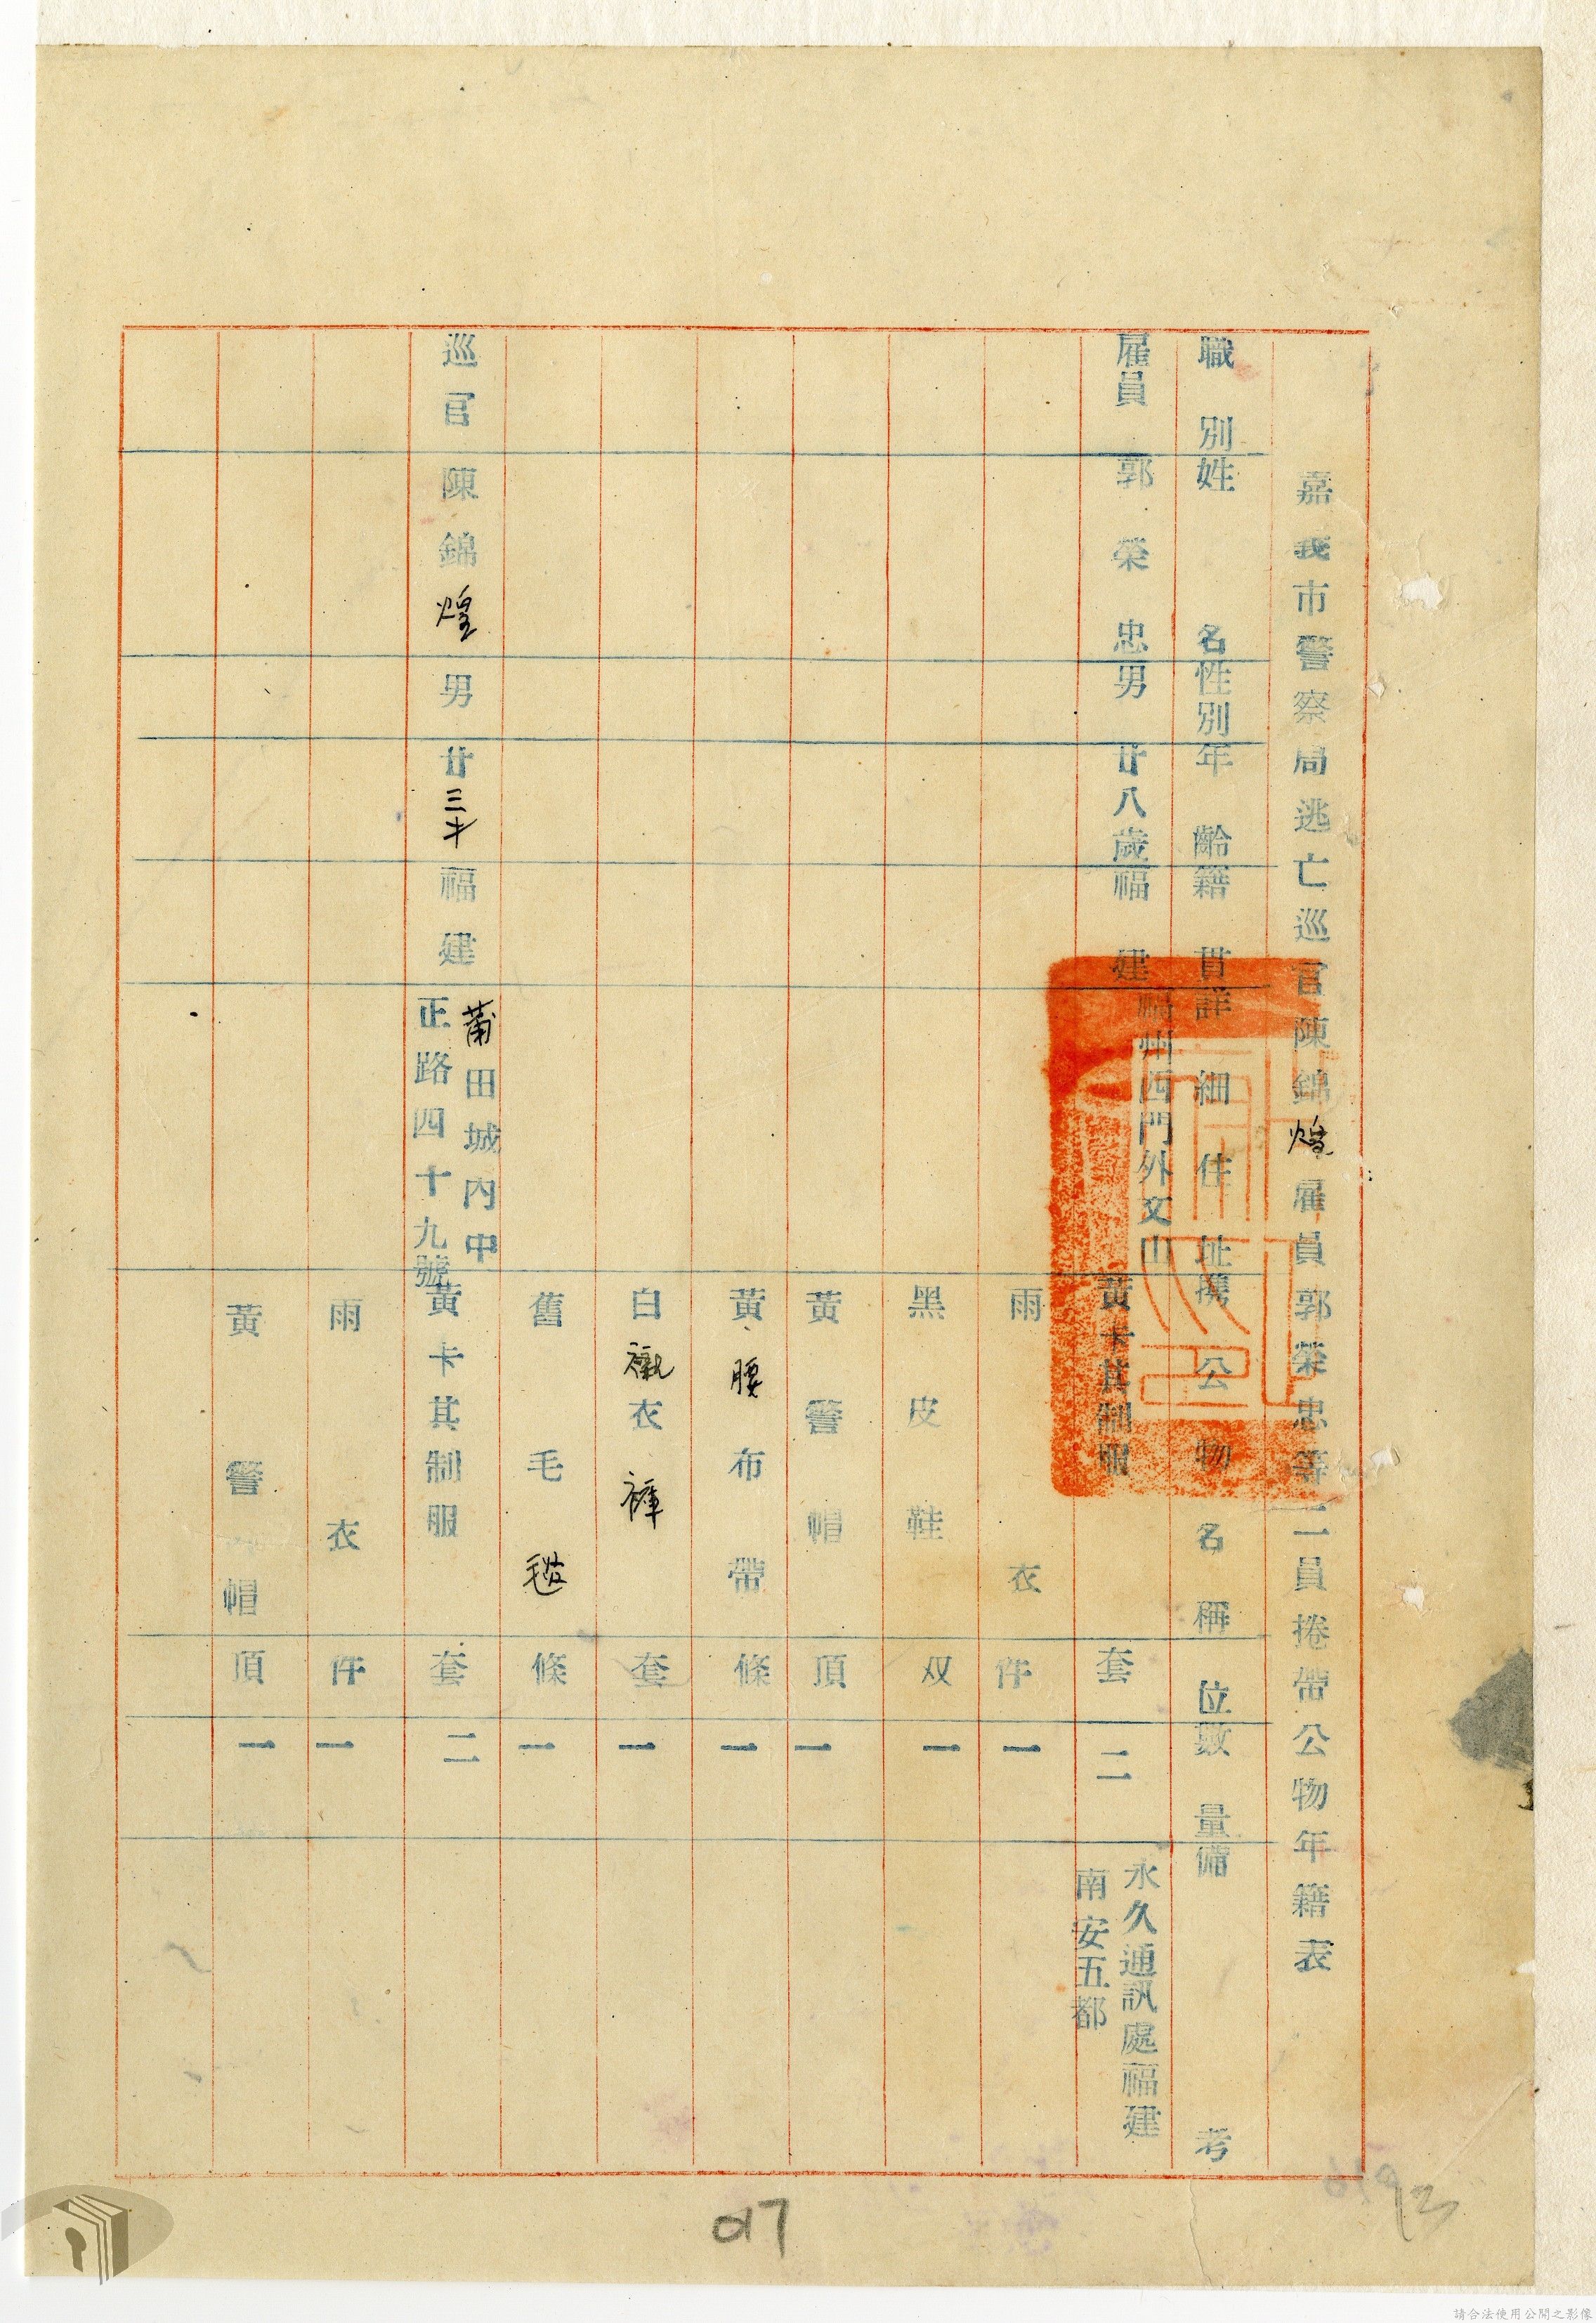 嘉義市警察局逃亡巡官陳錦煌雇員郭榮忠等二員捲帶公物年籍表
職別 姓名 性別 年齡 籍貫 詳細住址 携公物名稱 位 數量 備考
雇員 郭榮忠 男 廿八歲 福建 福州西門外文山 黃卡其制服 套 二 永久通訊處福建
南安五都
雨衣 件 一
黑皮鞋 双 一
黃警帽 頂 一
黃腰布帶 條 一
白襯衣褲 套 一
舊毛毯 條 一
巡官 陳錦煌 男 廿三才 福建 莆田城內中
正路四十九號 黃卡其制服 套 二
雨衣 件 一
黃警帽 頂 一
017
13
請合法使用公開之影像